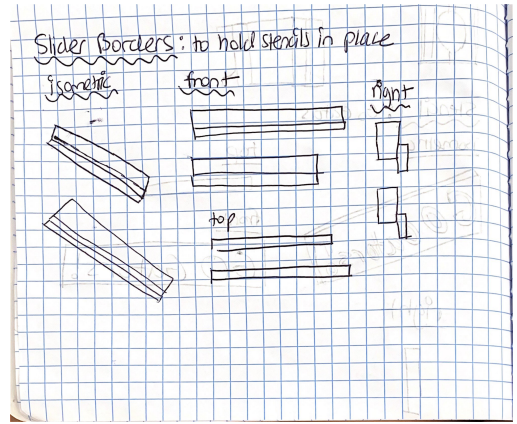 Slider Borders: to hold stencils in place
isometric front right
top